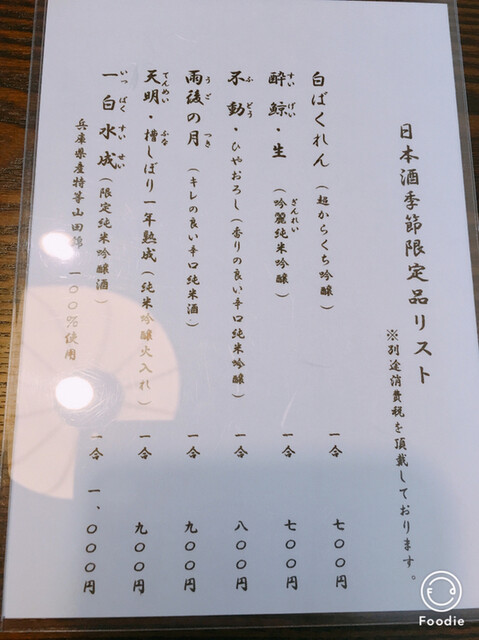 日本酒季節限定品リスト
※別途消費税を頂戴しております。
白ばくれん（超からくち吟醸） 一合 七〇〇円
すい げい ぎんれい
酔鯨・生（吟麗純米吟醸） 一合 七〇〇円
ふ どう
不動・ひやおろし（香りの良い辛口純米吟醸） 一合 八〇〇円
う ご つき
雨後の月（キレの良い辛口純米酒） 一合 九〇〇円
てんめい ふな
天明・槽しぼり一年熟成（純米吟醸火入れ） 一合 九〇〇円
いっ ぱく すい せい
一白水成（限定純米吟醸酒） 一合 一、〇〇〇円
兵庫県産特等山田錦 一〇〇％使用
Foodie